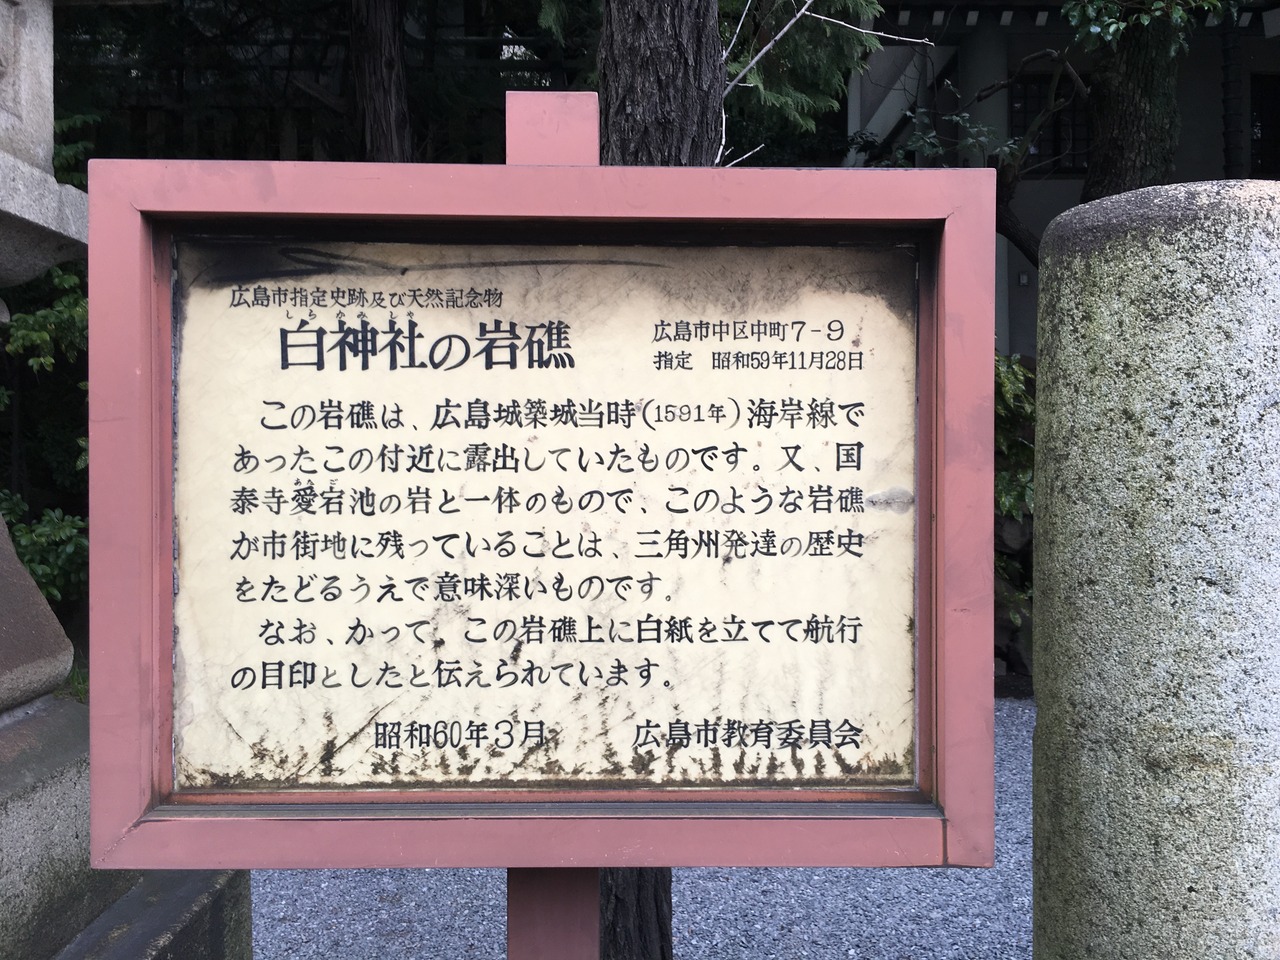 広島市指定史跡及び天然記念物
しらかみしゃ
白神社の岩礁
広島市中区中町7-9
指定　昭和59年11月28日
この岩礁は、広島城築城当時(1591年)海岸線で
あったこの付近に露出していたものです。又、国
あたご
泰寺愛宕池の岩と一体のもので、このような岩礁
が市街地に残っていることは、三角州発達の歴史
をたどるうえで意味深いものです。
なお、かって、この岩礁上に白紙を立てて航行
の目印としたと伝えられています。
昭和60年3月　広島市教育委員会